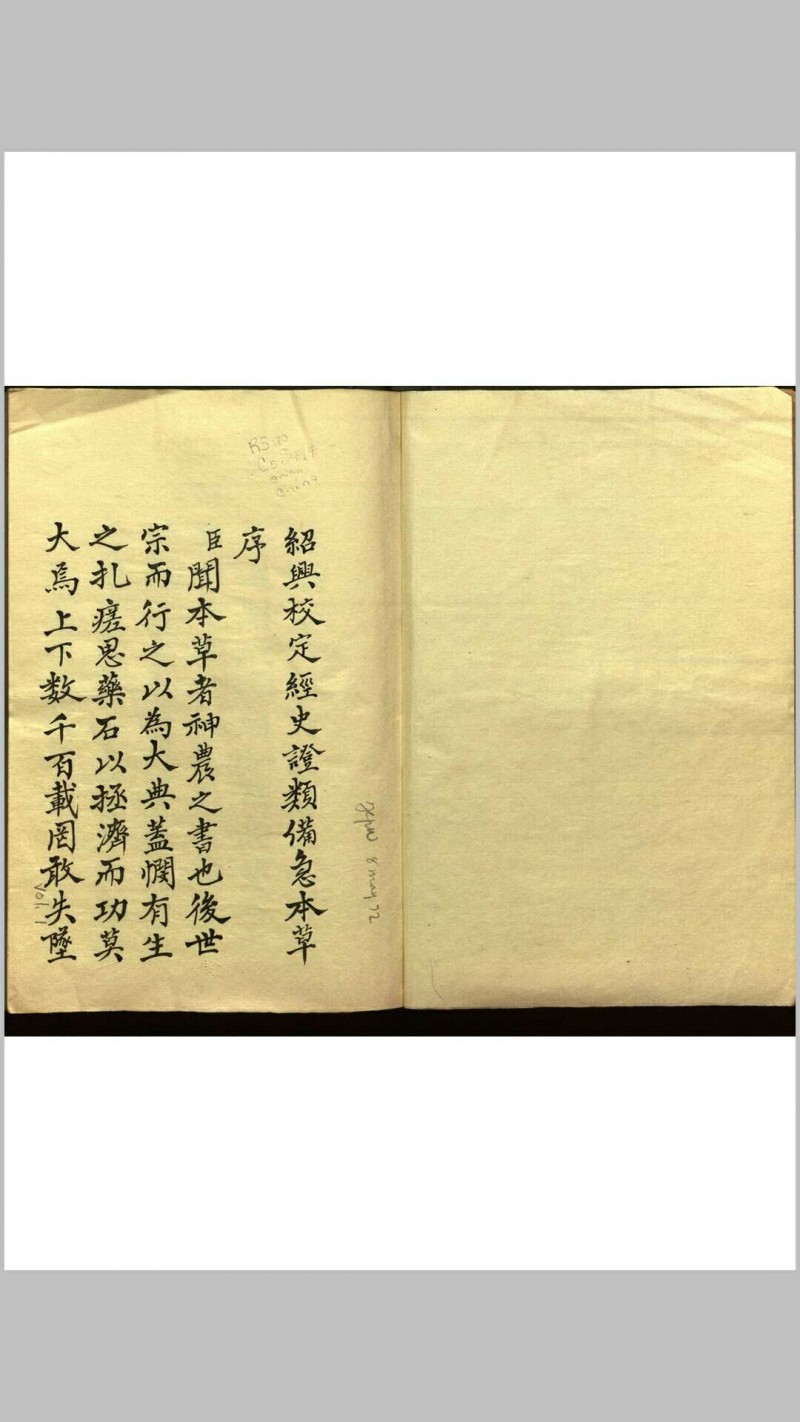 紹興校定經史證類備急本草
序
臣聞本草者神農之書也後世
宗而行之以為大典蓋憫有生
之扎瘥思藥石以拯濟而功莫
大焉上下数千百載罔敢失墜
RS180
China
8 may 72
Vol. 1